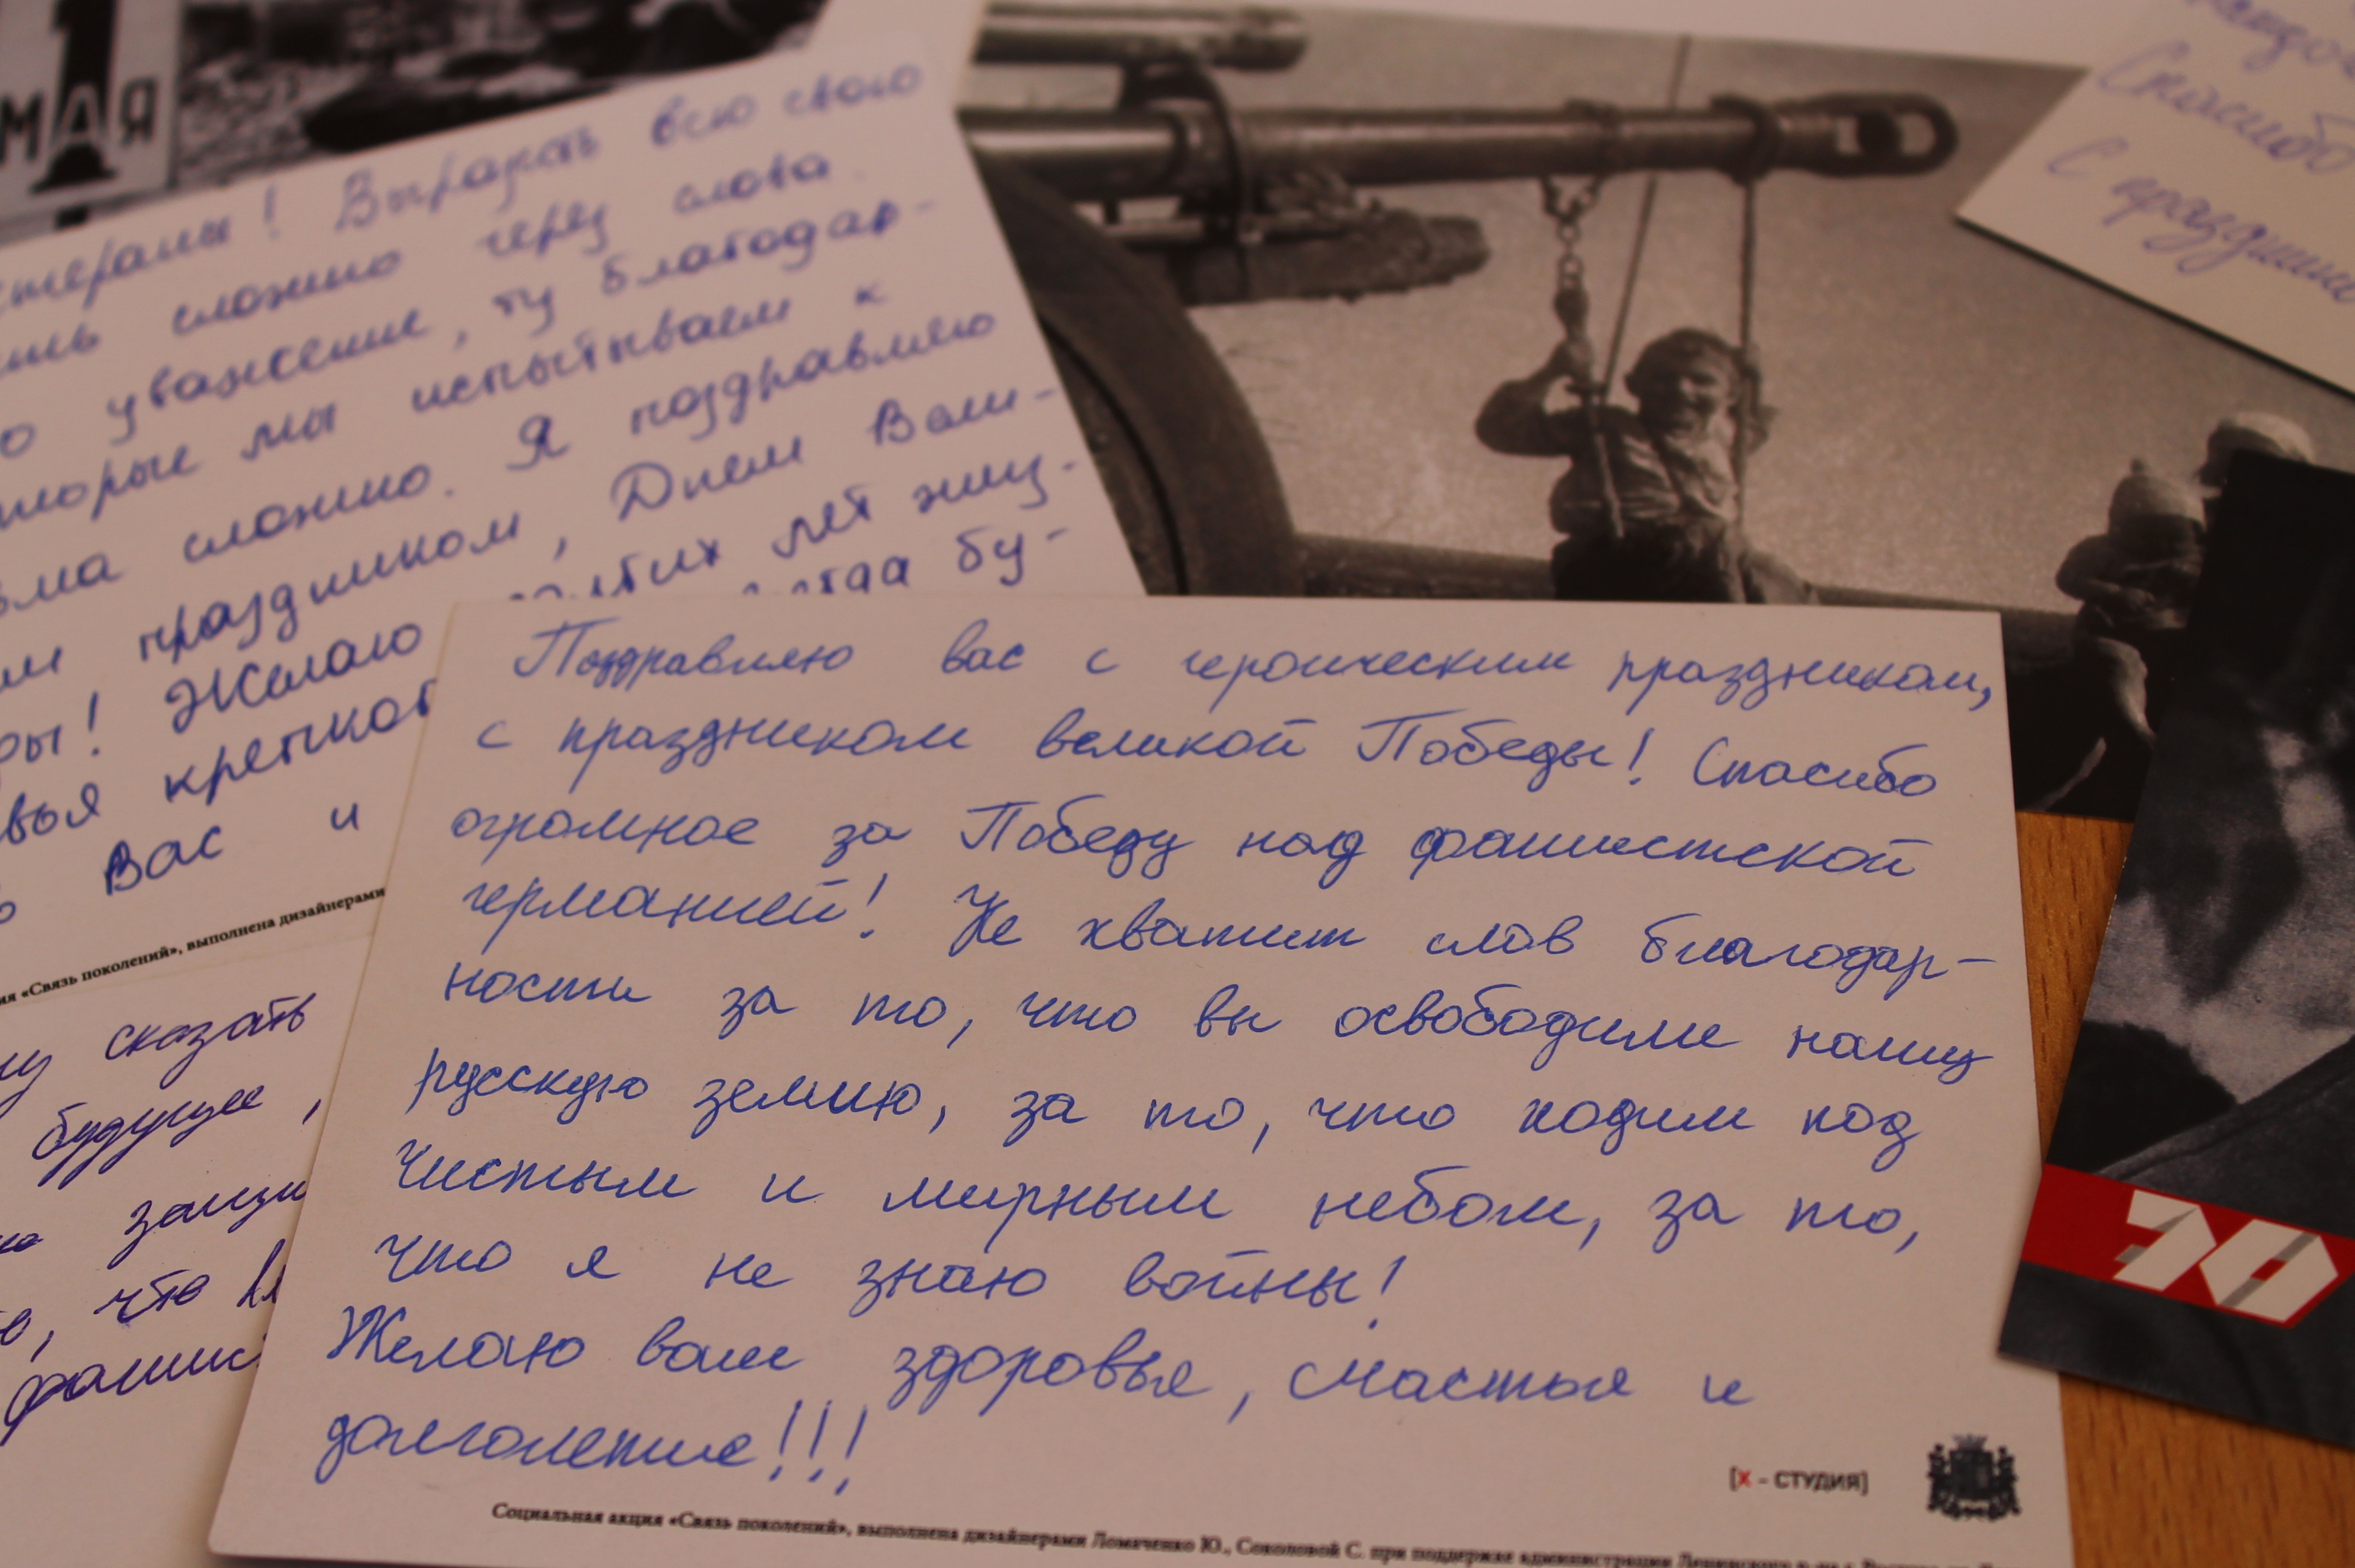 1
МАЯ
! Выражать всю свою
сложно через слова.
уважение, ту благодар-
мы испытываем к
сложно. Я поздравляю
праздником, Днем Вели-
! Желаю лет
крепкого бу-
Вас и
«Связь поколений», выполнена дизайнерами
сказать
будущее,
, что
Спасибо
С
Поздравляю вас с героическим праздником,
с праздником великой Победы! Спасибо
огромное за Победу над фашистской
германией! Не хватит слов благодар-
ности за то, что вы освободили нашу
русскую землю, за то, что ходим под
чистым и мирным небом, за то,
что я не знаю войны!
Желаю вам здоровья, счастья и
долголетие!!!
[X - СТУДИЯ]
Социальная акция «Связь поколений», выполнена дизайнерами Ломаченко Ю., Соколовой С. при поддержке администрации
70